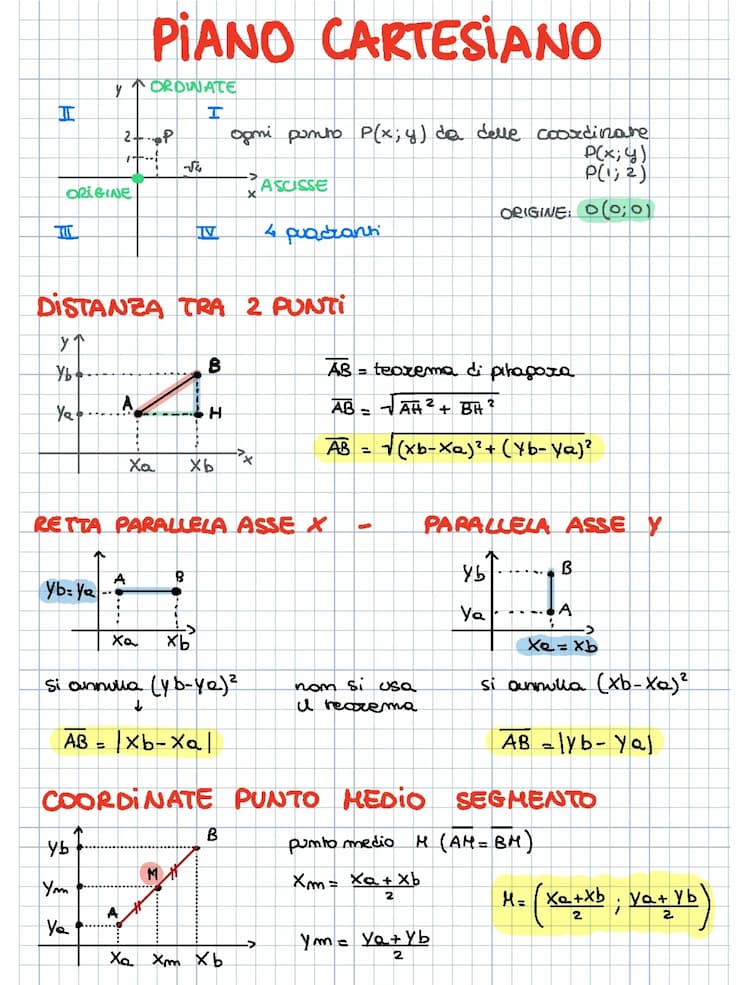 PIANO CARTESIANO
y ORDINATE
II I
2 P
1
ogni punto P(x;y) da delle coordinate
P(x;y)
P(1;2)
√2
x ASCISSE
ORIGINE
ORIGINE: O(0;0)
III IV 4 quadranti
DISTANZA TRA 2 PUNTI
y
yb B
ya A H
xa xb x
AB = teorema di pitagora
AB = √AH² + BH²
AB = √(xb-xa)² + (yb-ya)²
RETTA PARALLELA ASSE X - PARALLELA ASSE Y
yb=ya A B
xa xb
yb B
ya A
xa = xb
si annulla (yb-ya)²
non si usa
il teorema
si annulla (xb-xa)²
AB = |xb-xa|
AB = |yb-ya|
COORDINATE PUNTO MEDIO SEGMENTO
yb B
ym M
ya A
xa xm xb
punto medio M (AM=BM)
xm = xa+xb/2
ym = ya+yb/2
M = (xa+xb/2 ; ya+yb/2)